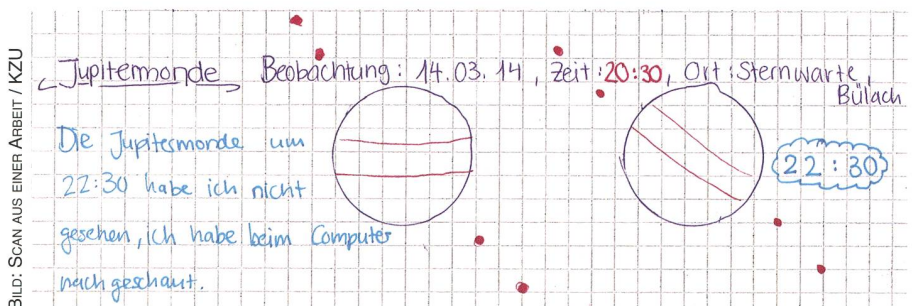 BILD: SCAN AUS EINER ARBEIT / KZU
Jupitermonde Beobachtung: 14.03.14, Zeit:20:30, Ort:Sternwarte,
Bülach
Die Jupitesmonde um
22:30 habe ich nicht
gesehen, ich habe beim Computer
nachgeschaut.
22:30